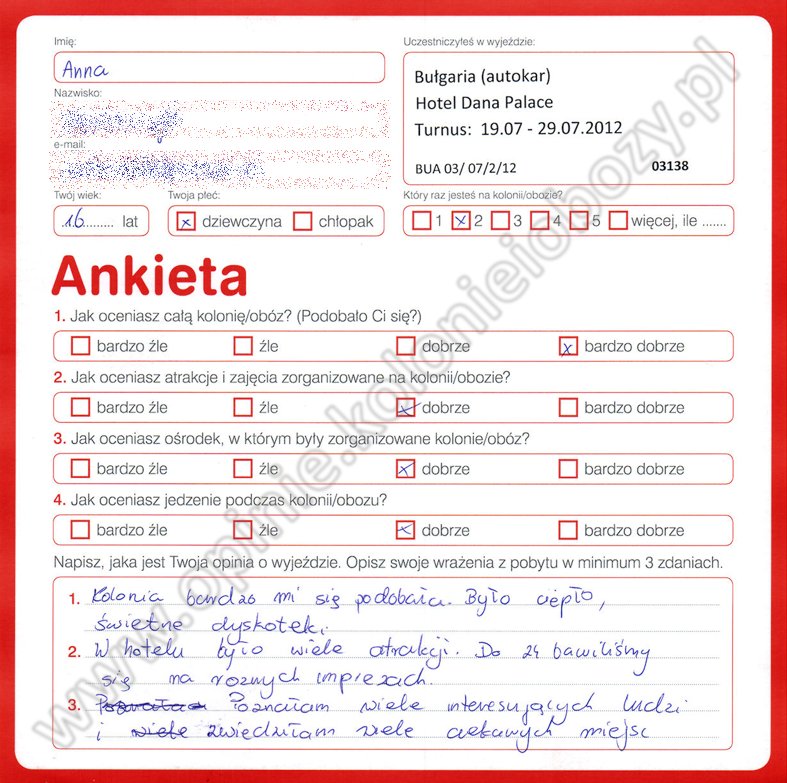 Imię:
Anna
Nazwisko:
e-mail:
Twój wiek:
16 lat
Twoja płeć:
x dziewczyna chłopak
Uczestniczyłeś w wyjeździe:
Bułgaria (autokar)
Hotel Dana Palace
Turnus: 19.07 - 29.07.2012
BUA 03/ 07/2/12 03138
Który raz jesteś na kolonii/obozie?
1 x 2 3 4 5 więcej, ile .......
Ankieta
1. Jak oceniasz całą kolonię/obóz? (Podobało Ci się?)
bardzo źle źle dobrze x bardzo dobrze
2. Jak oceniasz atrakcje i zajęcia zorganizowane na kolonii/obozie?
bardzo źle źle x dobrze bardzo dobrze
3. Jak oceniasz ośrodek, w którym były zorganizowane kolonie/obóz?
bardzo źle źle x dobrze bardzo dobrze
4. Jak oceniasz jedzenie podczas kolonii/obozu?
bardzo źle źle x dobrze bardzo dobrze
Napisz, jaka jest Twoja opinia o wyjeździe. Opisz swoje wrażenia z pobytu w minimum 3 zdaniach.
1. Kolonia bardzo mi się podobała. Było ciepło,
świetne dyskoteki.
2. W hotelu było wiele atrakcji. Do 24 bawiliśmy
się na roznych imprezach.
3. Poznałam wiele interesujących ludzi
i wiele zwiedziłam wiele ciekawych miejsc
www.opinie.kolonieiobozy.pl